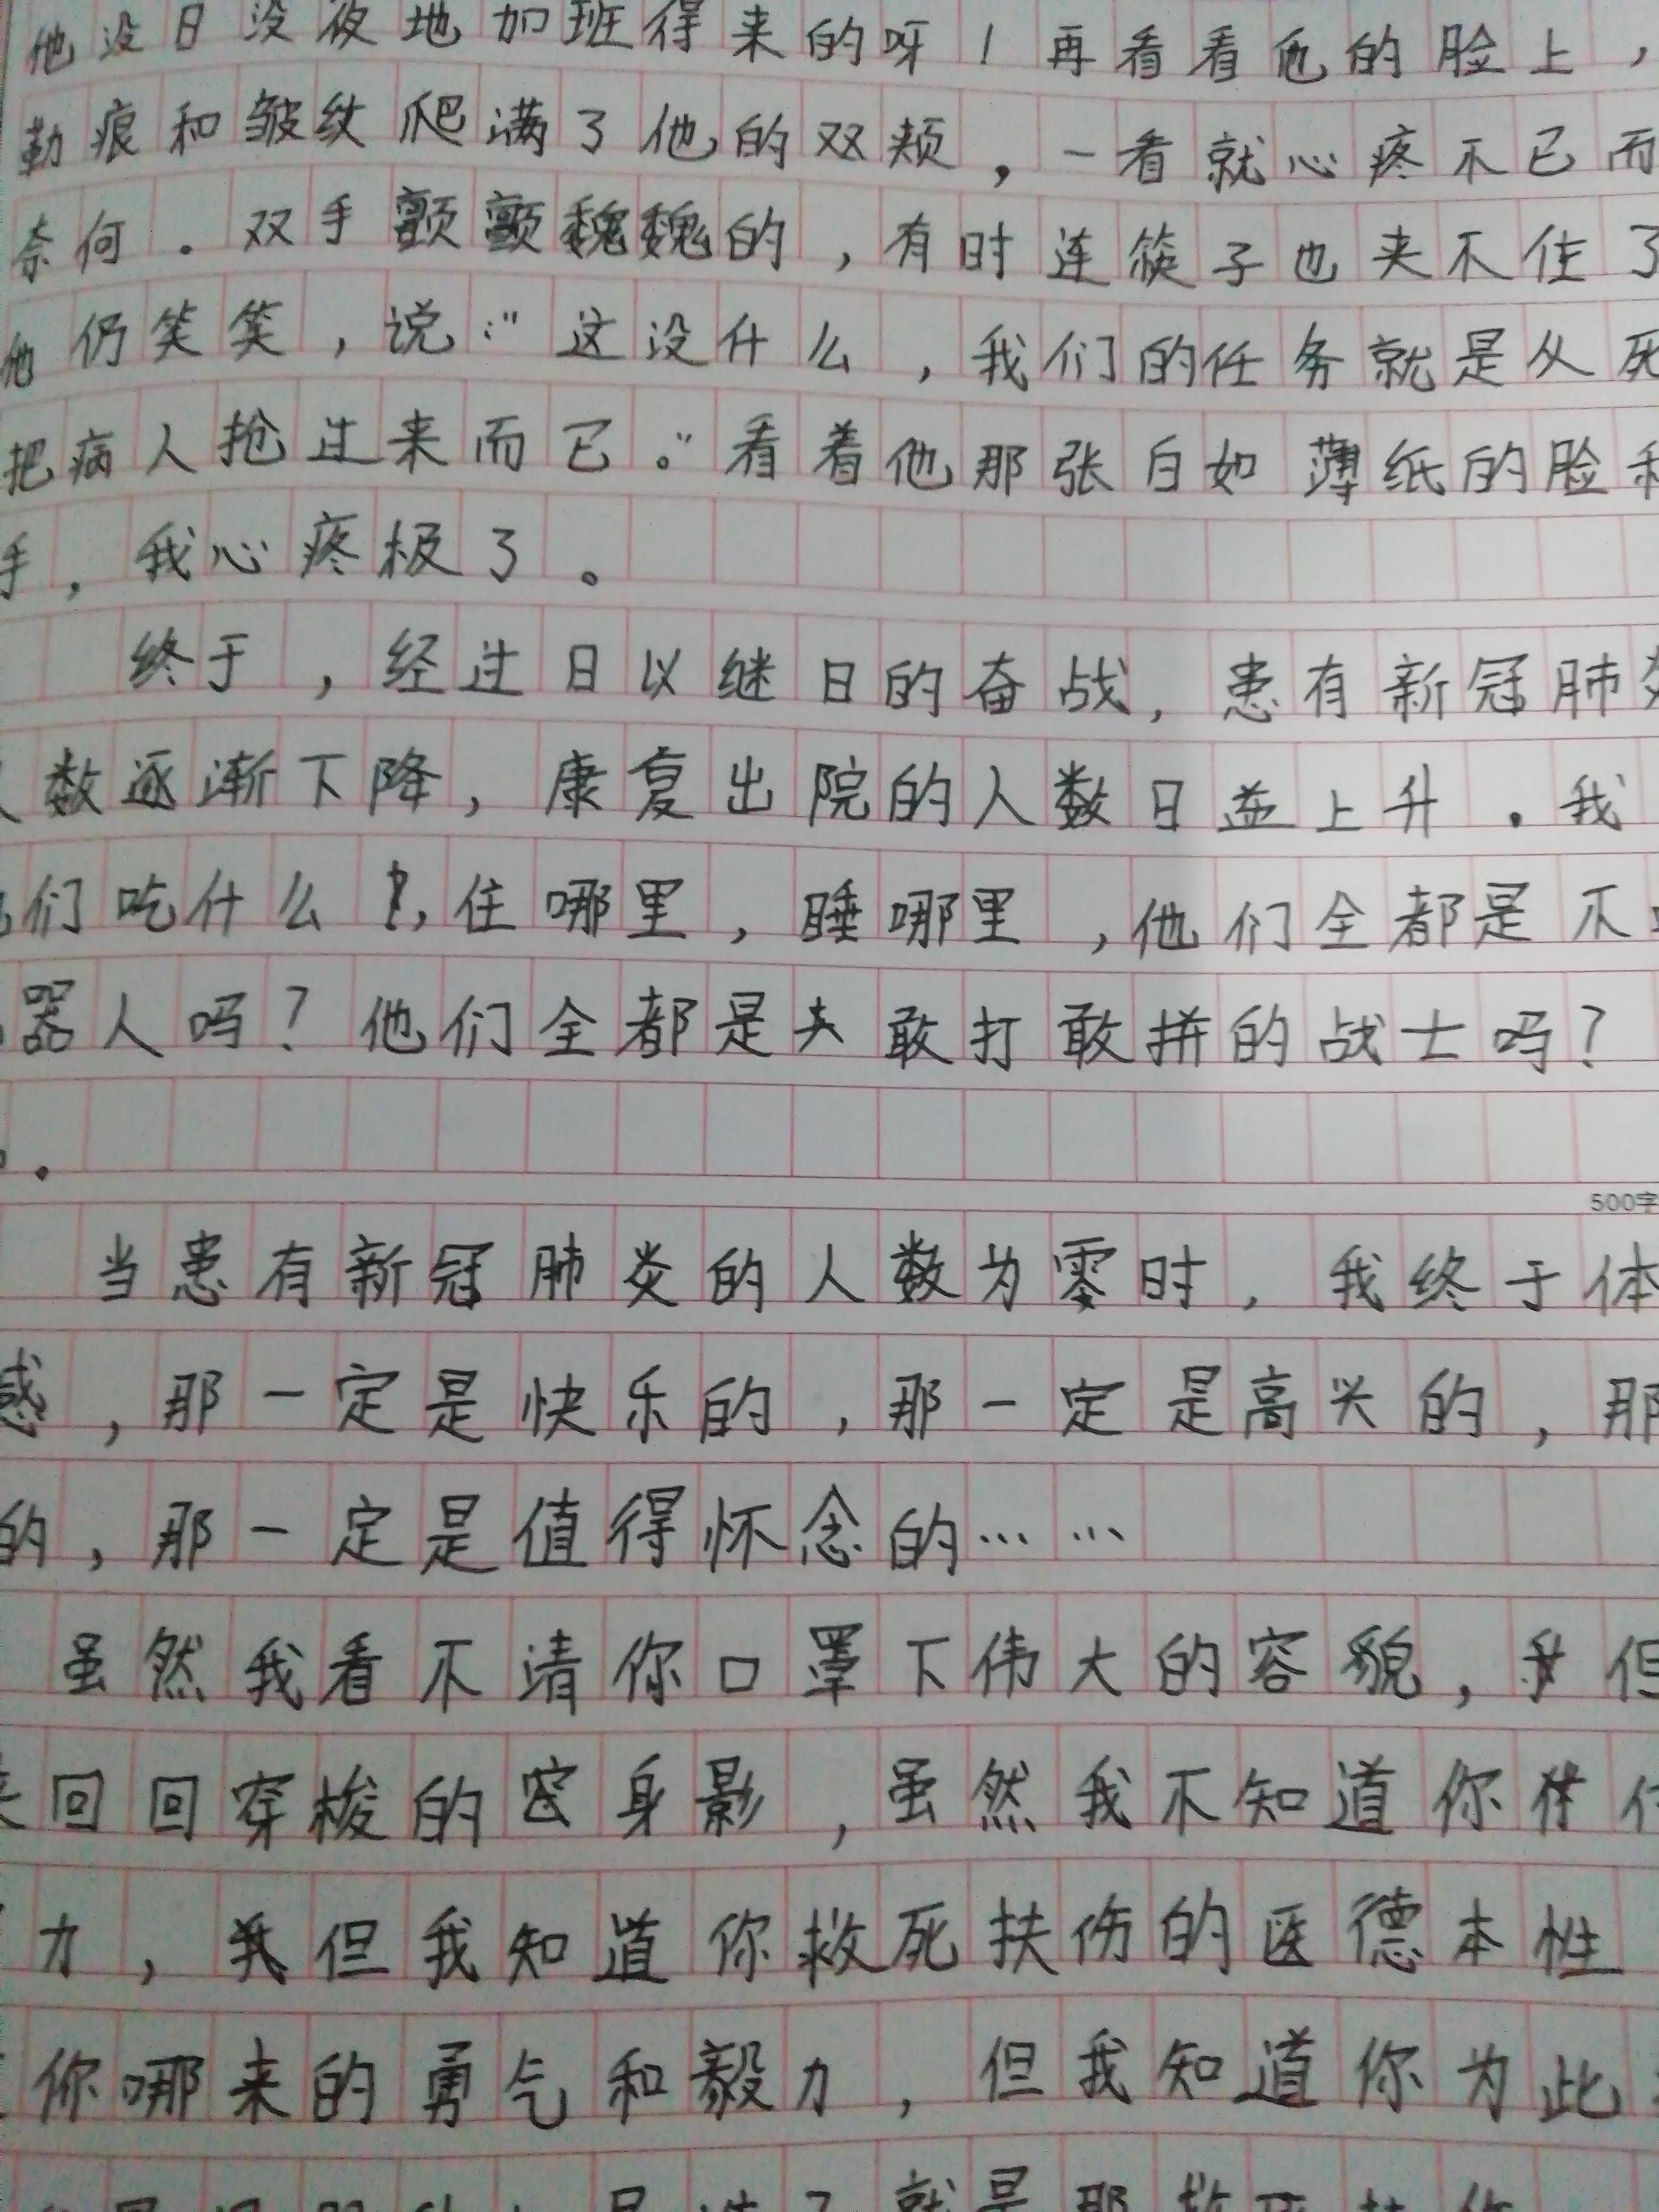 他没日没夜地加班得来的呀！再看看他的脸上，
勒痕和皱纹爬满了他的双颊，一看就心疼不已而
奈何．双手颤颤巍巍的，有时连筷子也夹不住了
他仍笑笑，说：“这没什么，我们的任务就是从死
把病人抢过来而已。”看着他那张白如薄纸的脸和
手，我心疼极了。
终于，经过日以继日的奋战，患有新冠肺炎
数逐渐下降，康复出院的人数日益上升．我
们吃什么，住哪里，睡哪里，他们全都是不
器人吗？他们全都是敢打敢拼的战士吗？
．
500字
当患有新冠肺炎的人数为零时，我终于体
感，那一定是快乐的，那一定是高兴的，那
的，那一定是值得怀念的……
虽然我看不清你口罩下伟大的容貌，但
来回回穿梭的身影，虽然我不知道你
力，但我知道你救死扶伤的医德本性
你哪来的勇气和毅力，但我知道你为此